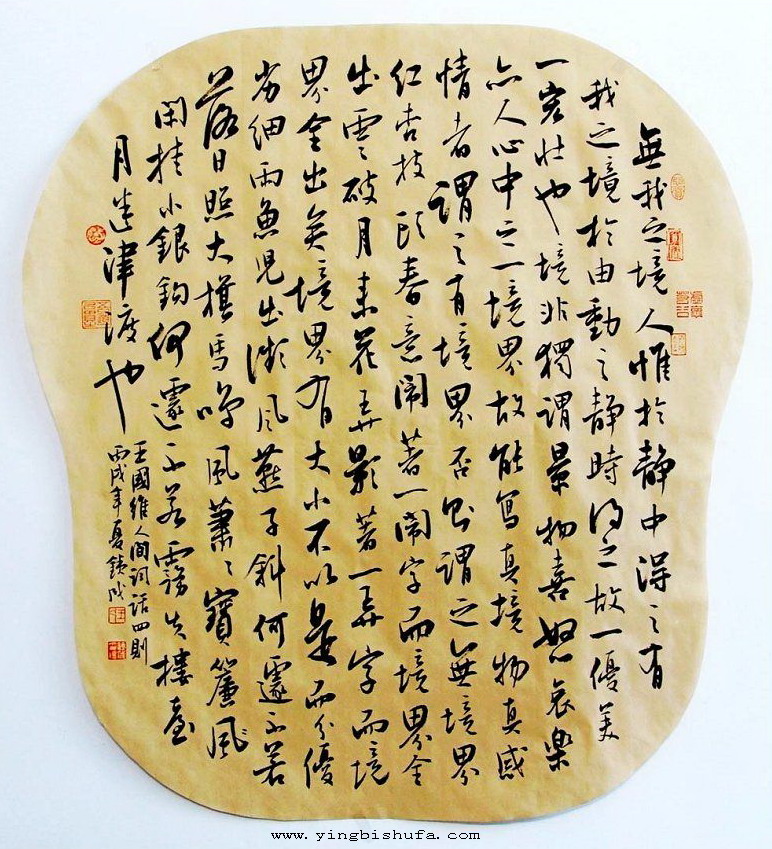 無我之境人惟於静中得之有
我之境於由動之静時得之故一優美
一宏壮也境非獨謂景物喜怒哀樂
亦人心中之一境界故能寫真境物真感
情者謂之有境界否則謂之無境界
红杏枝頭春意闹著一闹字而境界全
出雲破月来花弄影著一弄字而境
界全出矣境界有大小不以是而分優
劣细雨魚兒出微風燕子斜何遽不若
落日照大旗馬鳴風蕭々寶簾
闲挂小銀鈎何遽不若霧失樓臺
月迷津渡也
王國维人间词话四則
丙戌年夏
www.yingbishufa.com